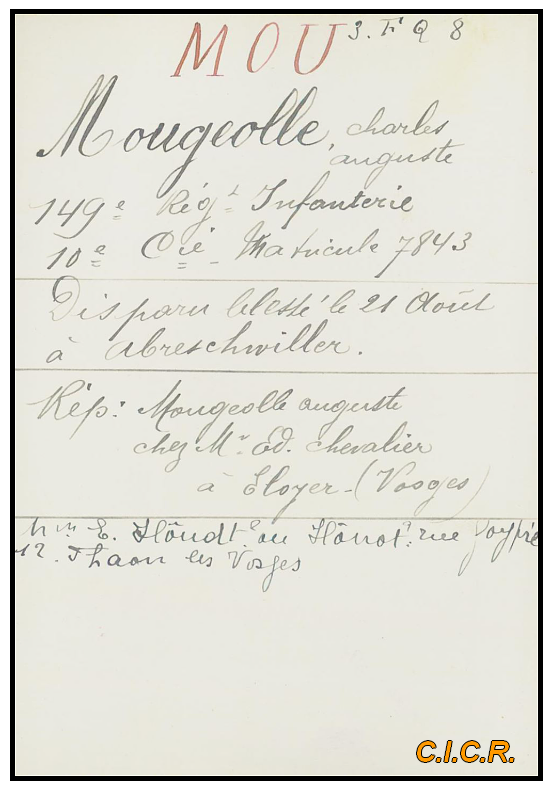 MOU 3. F Q 8
Mougeolle, charles
auguste
149e Régt Infanterie
10e Cie - Matricule 7843
Disparu blessé le 21 Août
à Abreschwiller.
Rép: Mougeolle auguste
chez Mr Ed. chevalier
à Eloyer - (Vosges)
E. Hôundt? ou Hônot? rue
12. Thaon les Vosges
C.I.C.R.